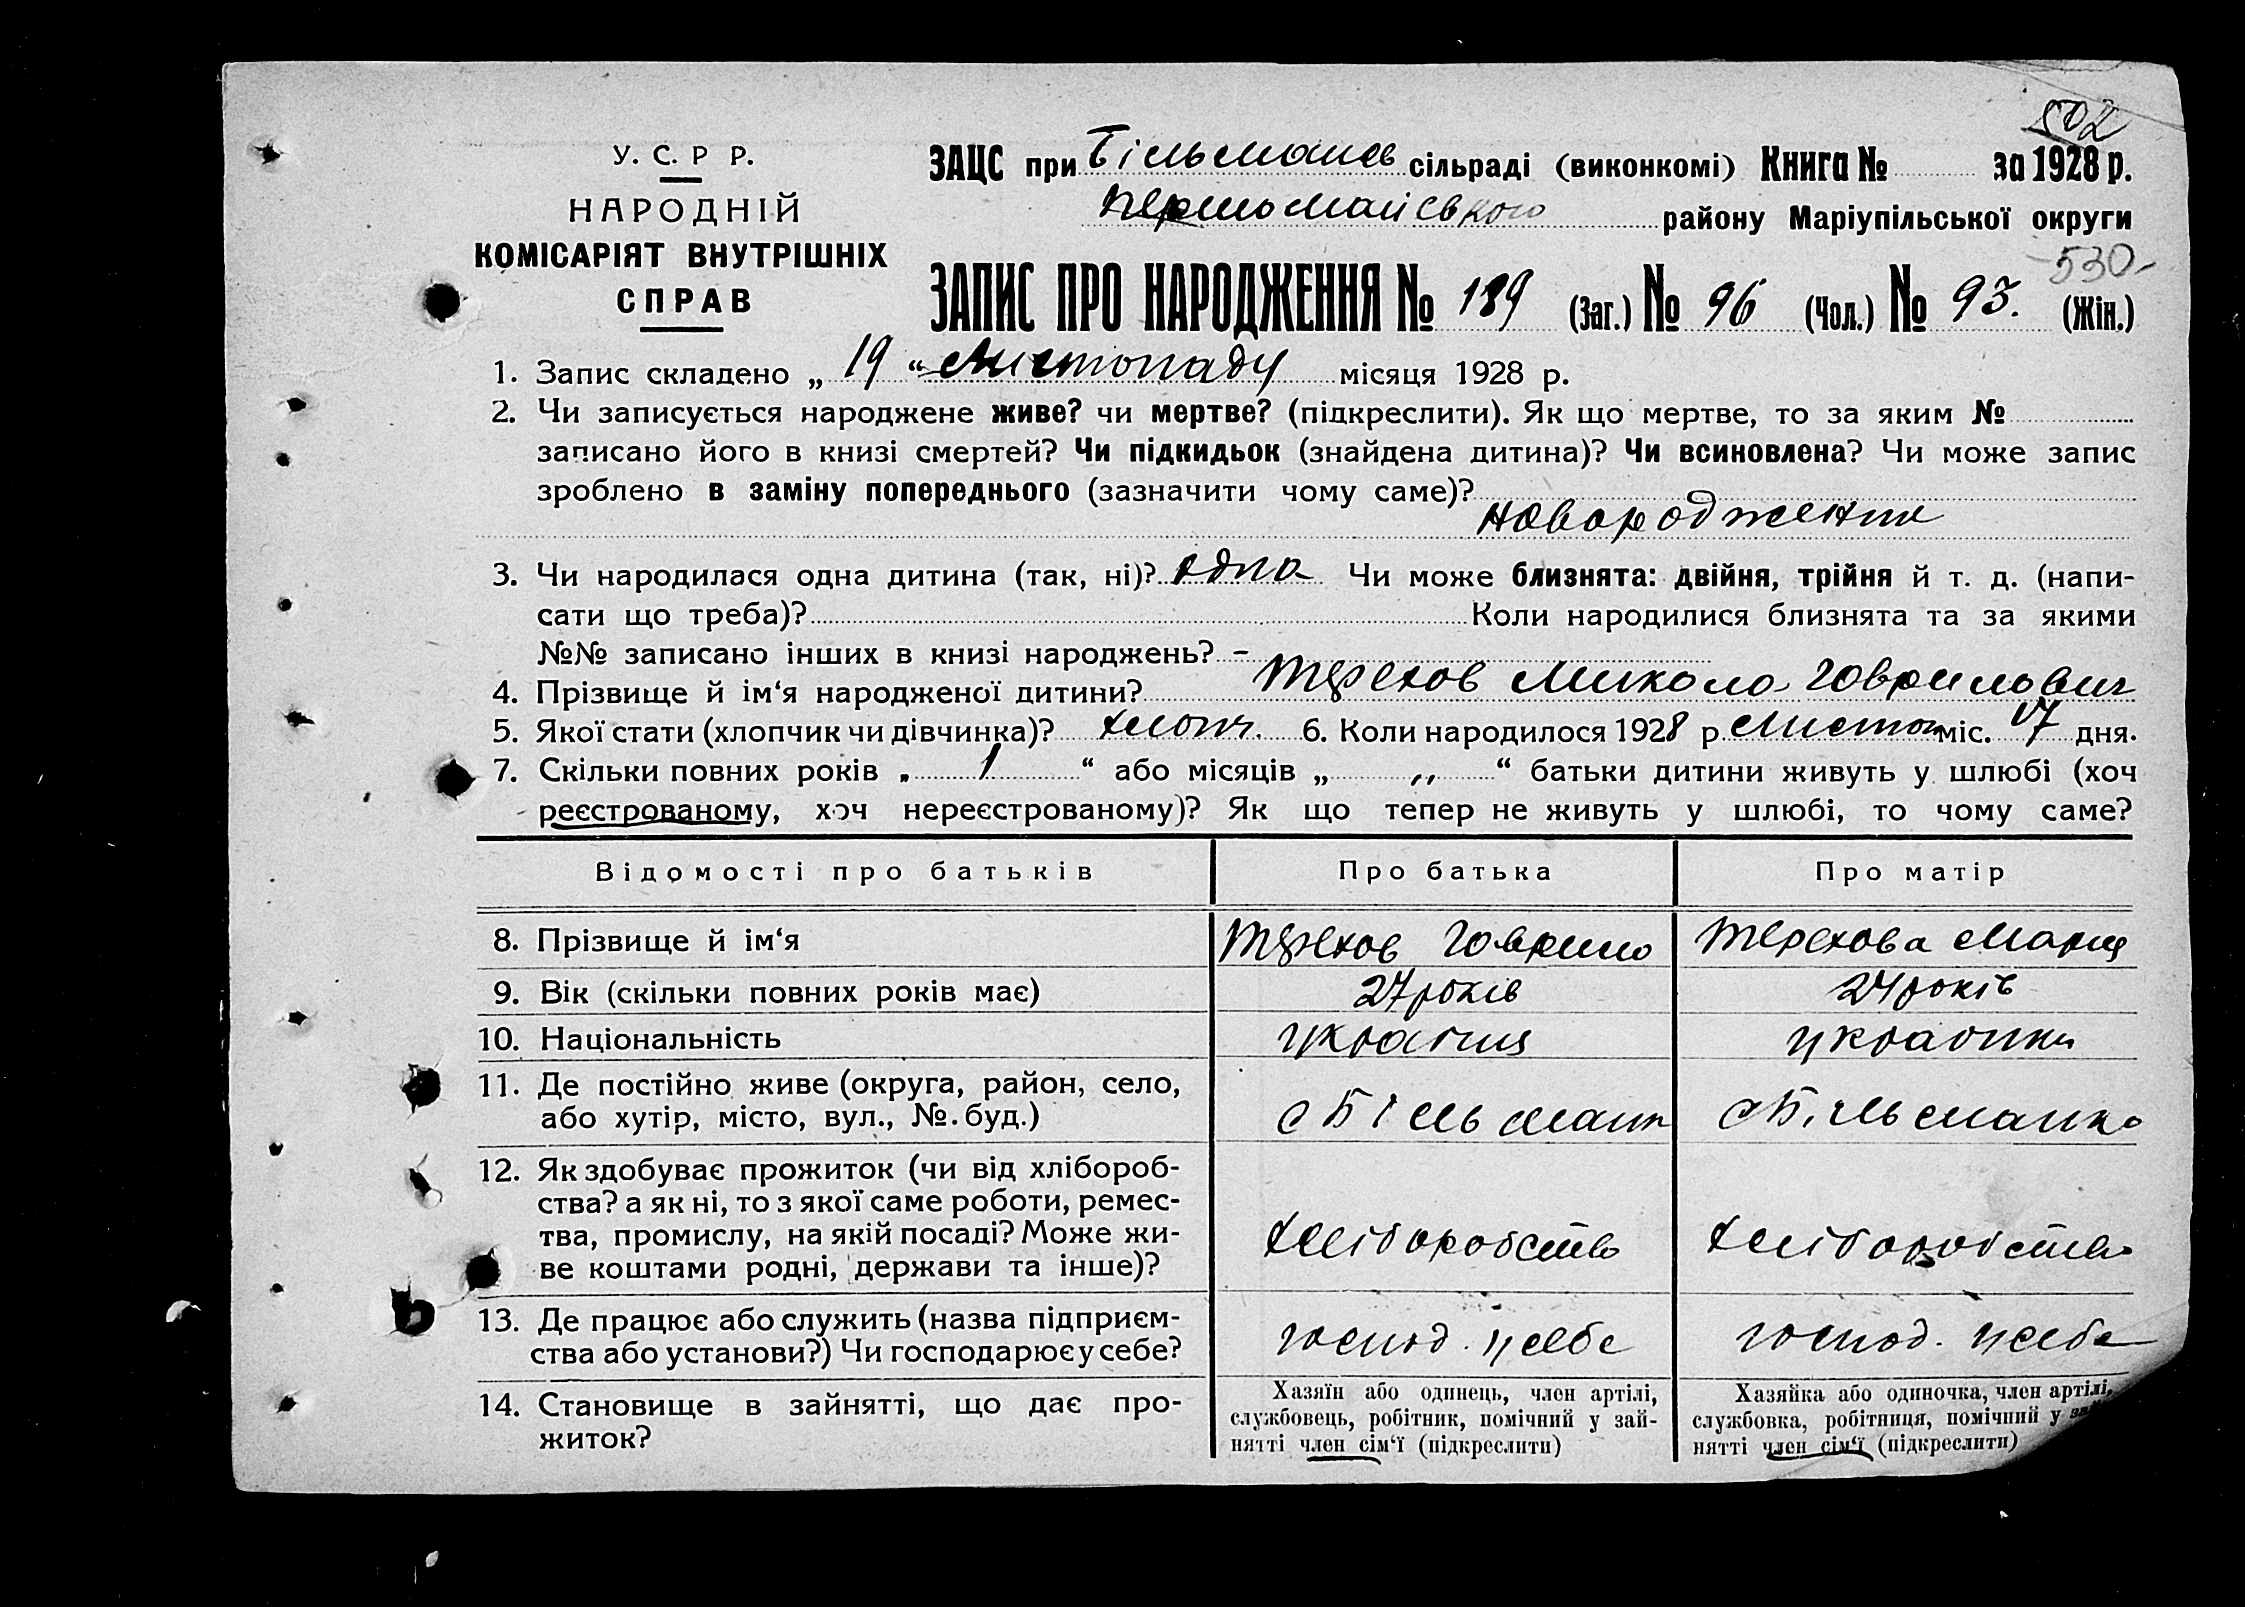 502
У. С. Р Р.
НАРОДНІЙ
КОМІСАРІЯТ ВНУТРІШНІХ
СПРАВ
ЗАЦС при Більманев сільраді (виконкомі) Книга № за 1928 р.
Першомайського району Маріупільської округи
530
ЗАПИС ПРО НАРОДЖЕННЯ № 189 (Заг.) № 96 (Чол.) № 93. (Жін.)
1. Запис складено „ 19 “ Листопаду місяця 1928 р.
2. Чи записується народжене живе? чи мертве? (підкреслити). Як що мертве, то за яким №
записано його в книзі смертей? Чи підкидьок (знайдена дитина)? Чи всиновлена? Чи може запис
зроблено в заміну попереднього (зазначити чому саме)?
новороджений
3. Чи народилася одна дитина (так, ні)? одна Чи може близнята: двійня, трійня й т. д. (напи-
сати що треба)? Коли народилися близнята та за якими
№№ записано інших в книзі народжень? –
4. Прізвище й ім‘я народженої дитини? Терехов Микола Гаврилович
5. Якої стати (хлопчик чи дівчинка)? хлопч. 6. Коли народилося 1928 р. Листоп міс. 17 дня.
7. Скільки повних років „ 1 “ або місяців „ „ “ батьки дитини живуть у шлюбі (хоч
реєстрованому, хоч нереєстрованому)? Як що тепер не живуть у шлюбі, то чому саме?
Відомості про батьків Про батька Про матір
8. Прізвище й ім‘я Терехов Гаврило Терехова Мария
9. Вік (скільки повних років має) 27 років 24 років
10. Національність україниц украінка
11. Де постійно живе (округа, район, село,
або хутір, місто, вул., №. буд.) с Більманк с Більманка
12. Як здобуває прожиток (чи від хлібороб-
ства? а як ні, то з якої саме роботи, ремес-
тва, промислу, на якій посаді? Може жи-
ве коштами родні, держави та інше)? хліборобство хліборобство
13. Де працює або служить (назва підприєм-
ства або установи?) Чи господарює у себе? господ. у себе господ. у себе
14. Становище в зайнятті, що дає про-
житок?
Хазяїн або одинець, член артілі,
службовець, робітник, помічний у зай-
нятті член сім‘ї (підкреслити)
Хазяйка або одиночка, член артілі,
службовка, робітниця, помічний у зай
нятті член сім‘ї (підкреслити)